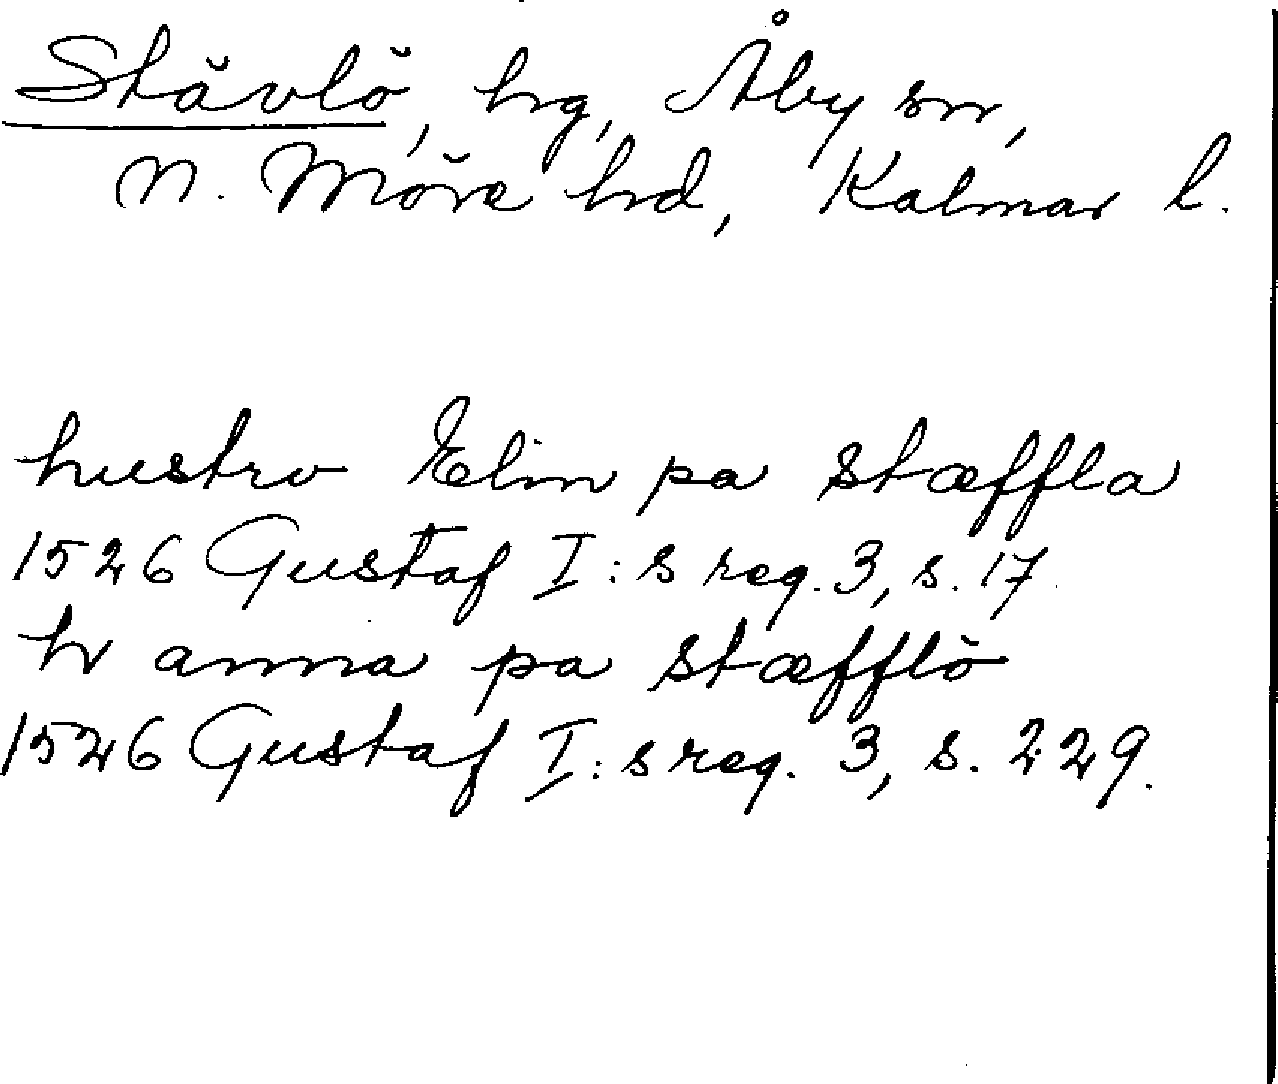 Stävlö, hg, Åby sn,
N. Möre hd, Kalmar l.
hustro Elin pa stæffla
1526 Gustaf I:s reg. 3, s. 17.
hr anna pa stæfflö
1526 Gustaf I:s reg. 3, s. 229.